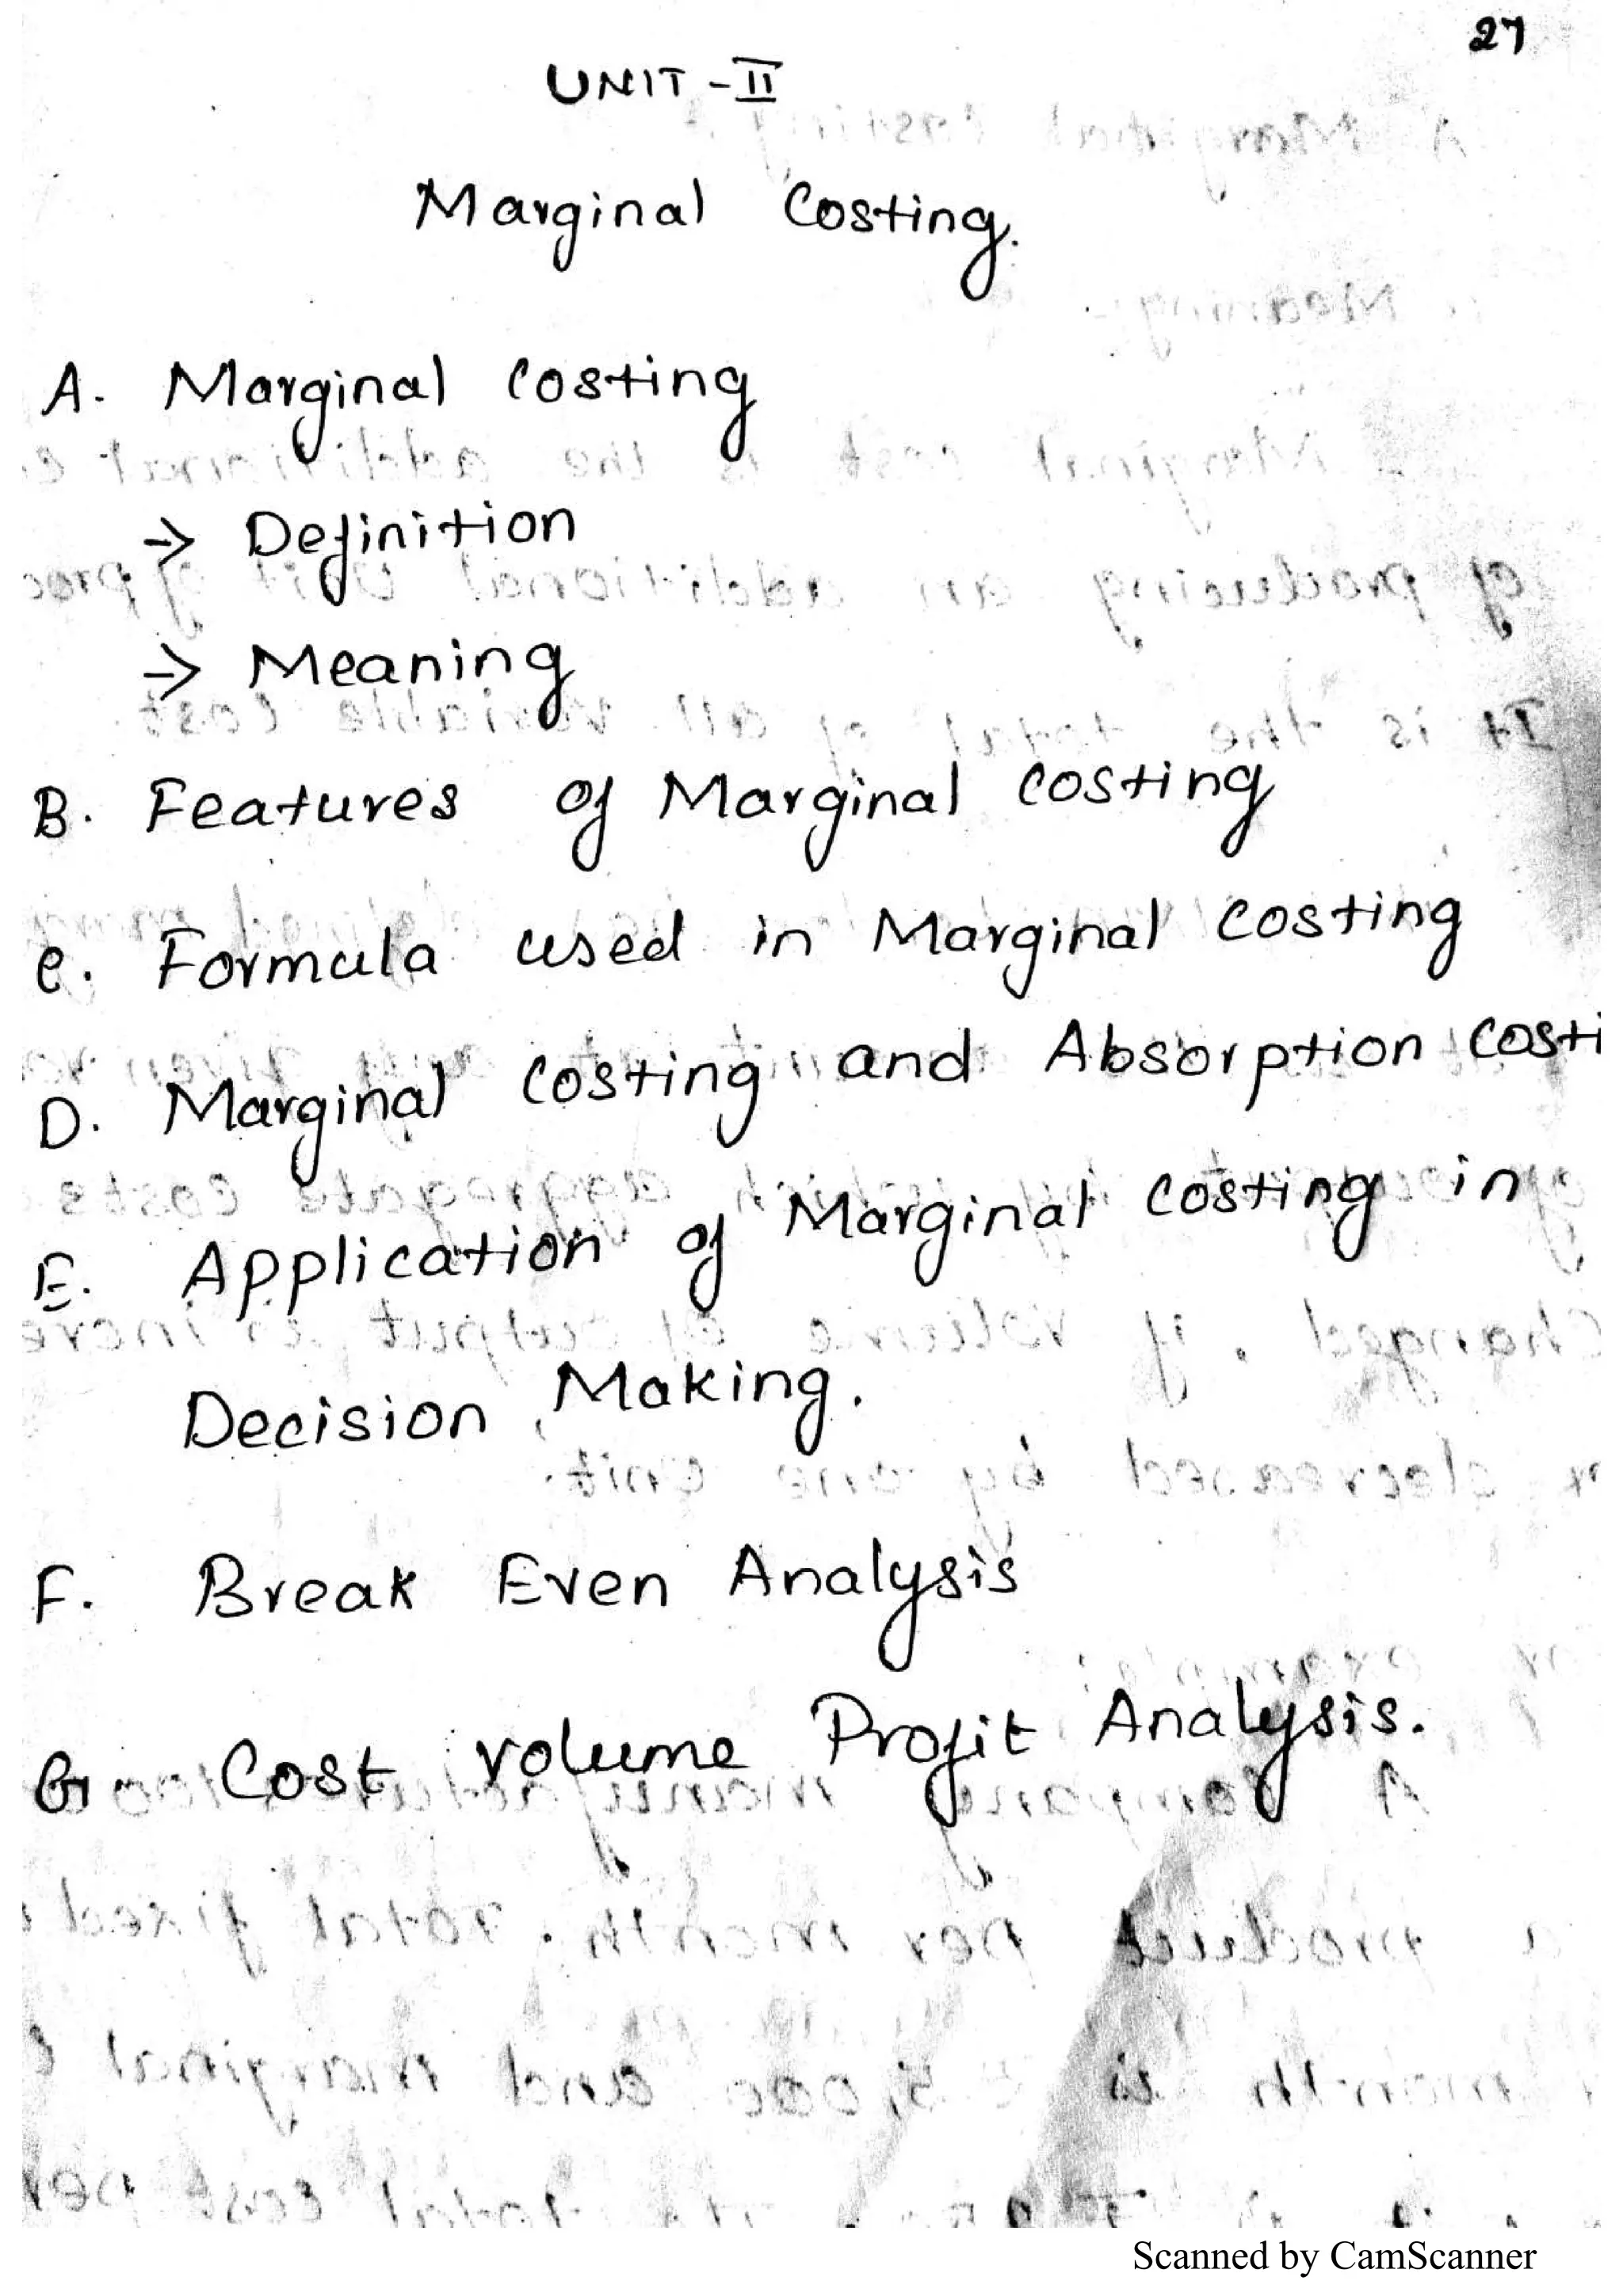 27
UNIT - II
Marginal Costing.
A. Marginal Costing
→ Definition
→ Meaning
B. Features of Marginal Costing
C. Formula used in Marginal Costing
D. Marginal Costing and Absorption Costi
E. Application of Marginal Costing in
Decision Making.
F. Break Even Analysis
G Cost volume Profit Analysis.
Scanned by CamScanner